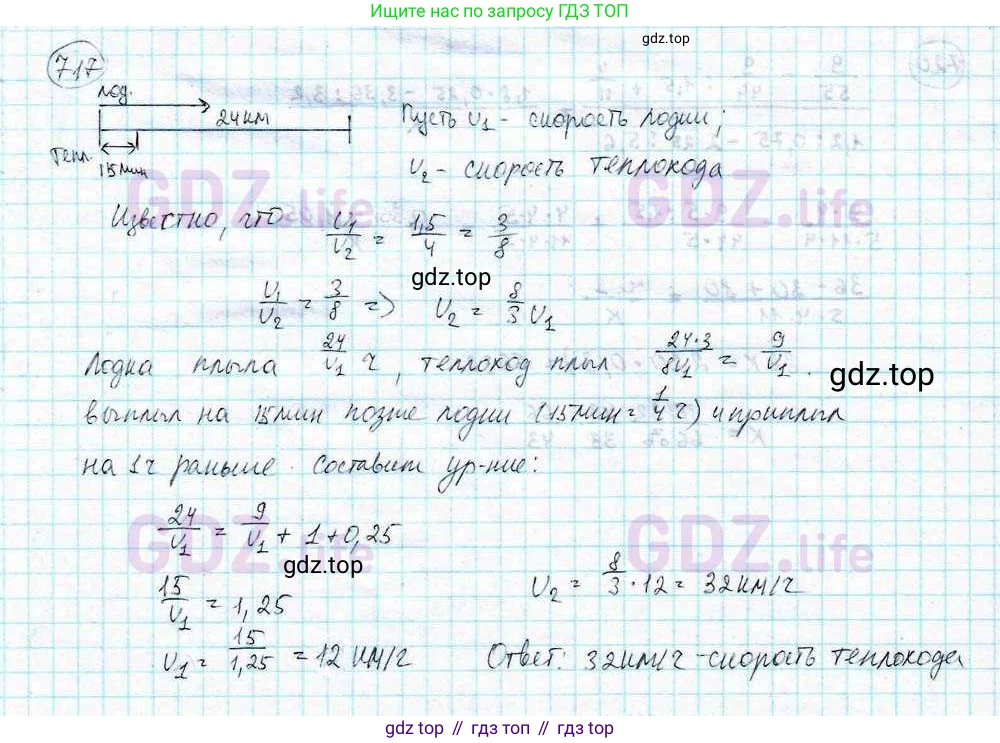 Ищите нас по запросу ГДЗ ТОП
gdz.top
717
720
лод.
24 км
Тепл.
15 мин
Пусть υ₁ - скорость лодки;
υ₂ - скорость теплохода
GDZ.life GDZ.life
Известно, что υ₁/υ₂ = 1,5/4 = 3/8
gdz.top
υ₁/υ₂ = 3/8 => υ₂ = 8/3 υ₁
Лодка плыла 24/υ₁ ч, теплоход плыл 24·3/8υ₁ = 9/υ₁.
gdz.top
выплыл на 15 мин позже лодки (15 мин = 1/4 ч) и приплыл
на 1 ч раньше. Составим ур-ние:
GDZ.life GDZ.life
24/υ₁ = 9/υ₁ + 1 + 0,25
gdz.top
15/υ₁ = 1,25
υ₂ = 8/3 · 12 = 32 км/ч
υ₁ = 15/1,25 = 12 км/ч
Ответ: 32 км/ч - скорость теплохода
gdz.top // гдз топ // gdz.top